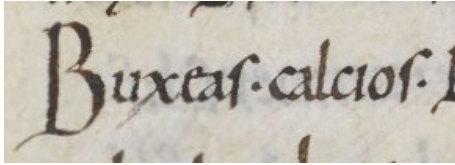 Buxeas· calcios·